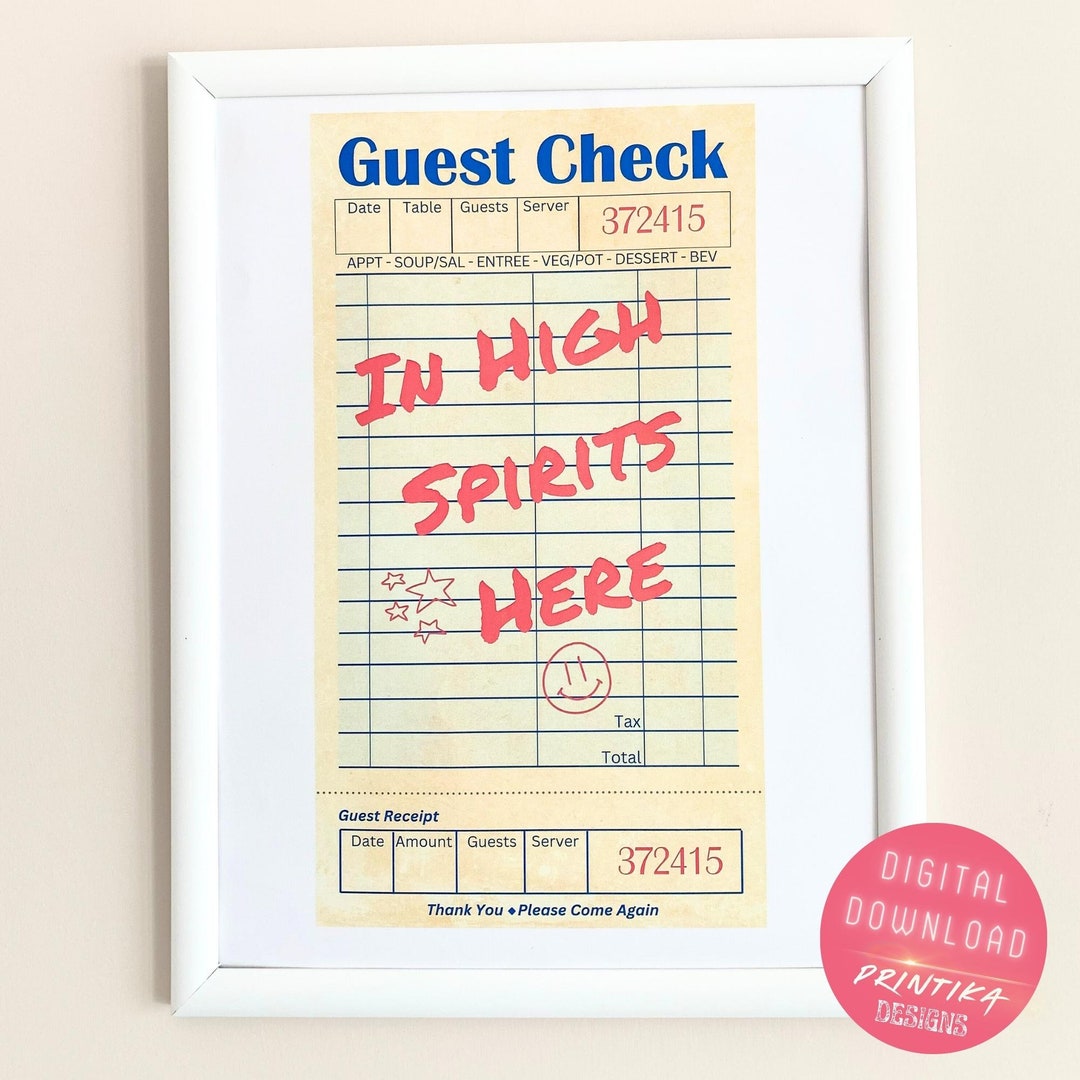 Guest Check
Date Table Guests Server 372415
APPT - SOUP/SAL - ENTREE - VEG/POT - DESSERT - BEV
IN HIGH
SPIRITS
HERE
Tax
Total
Guest Receipt
Date Amount Guests Server 372415
Thank You ◆ Please Come Again
DIGITAL
DOWNLOAD
PRINTIKA
DESIGNS